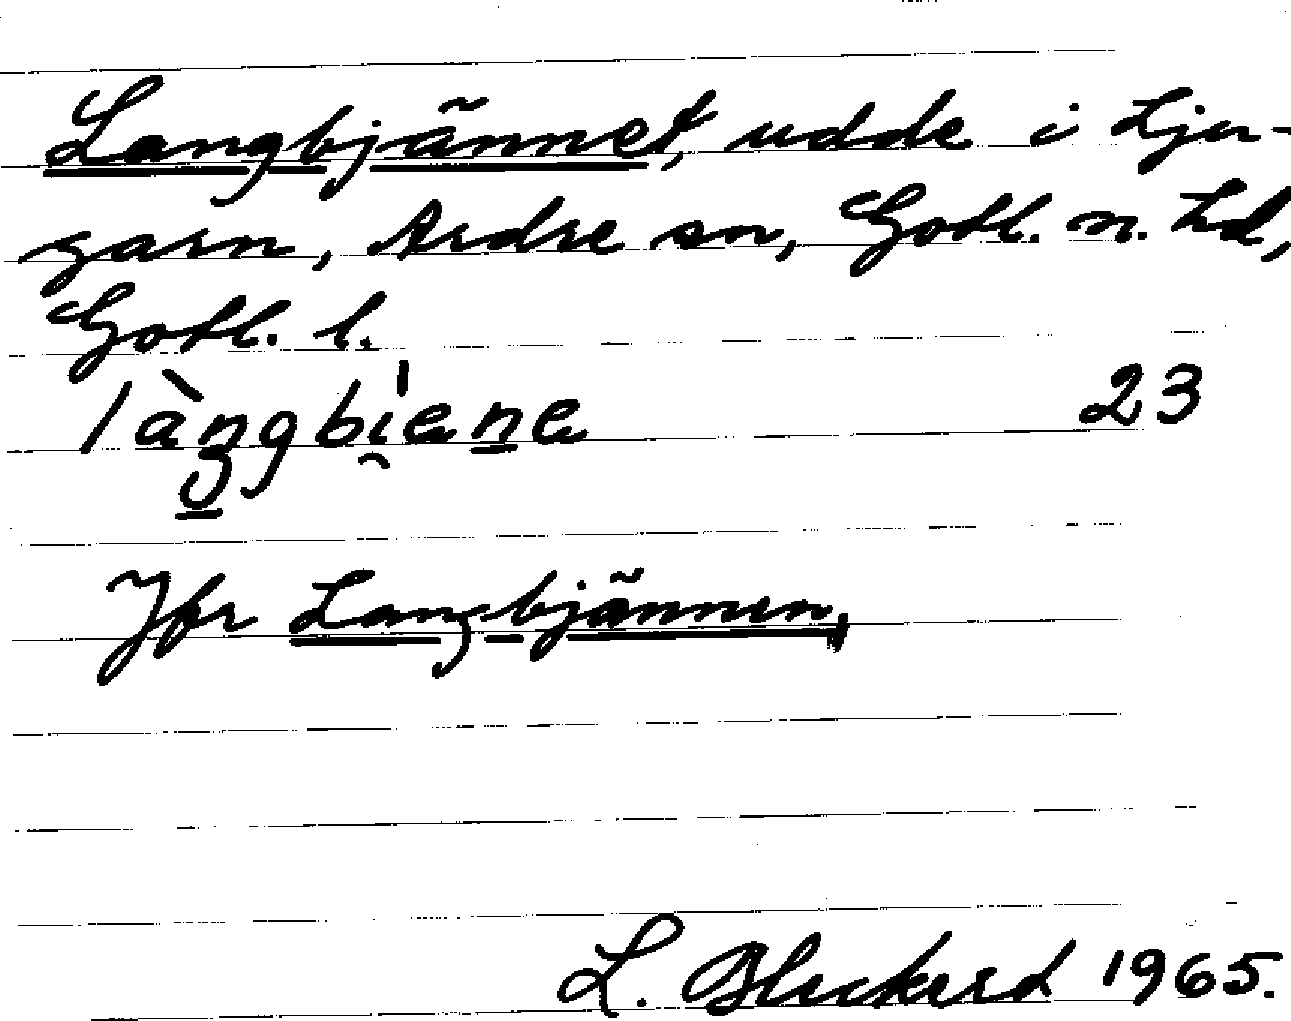 Langbjännet, udde i Lju-
garn, Ardre sn, Gotl. n. hd,
Gotl. l.
làngbi̯ene 23
Jfr Langbjännen,
L. Bleckerd 1965.